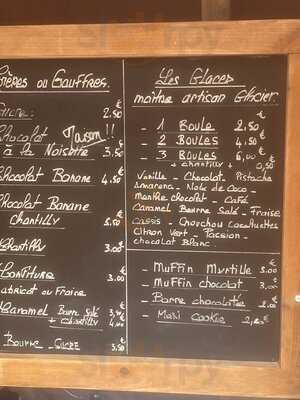 ières ou Gauffres.
ucre: 2.50 €
hocolat Maison!!
à la Noisette 3,50
hocolat Banane 4.50
hocolat Banane
chantilly 5.00
hantilly 3.00
onfiture 3.00
abricot ou Fraise
aramel Beurre Salé 3,50
+ chantilly 4,00
Beurre - Sucre 3.50
Les Glaces
maître artisan Glacier.
- 1 Boule 2,50 €
- 2 Boules 4.50
- 3 Boules 6,00 €
+ chantilly + 0,50
Vanille - Chocolat - Pistache
Amarena - Noix de Coco -
menthe chocolat - Café
Caramel Beurre Salé - Fraise
Cassis - Chouchou Cacahuètes
Citron Vert - Passion -
chocolat Blanc
- Muffin Myrtille 3.00 €
- Muffin chocolat 3.00
- Barre chocolatée 2.00
- Maxi Cookie